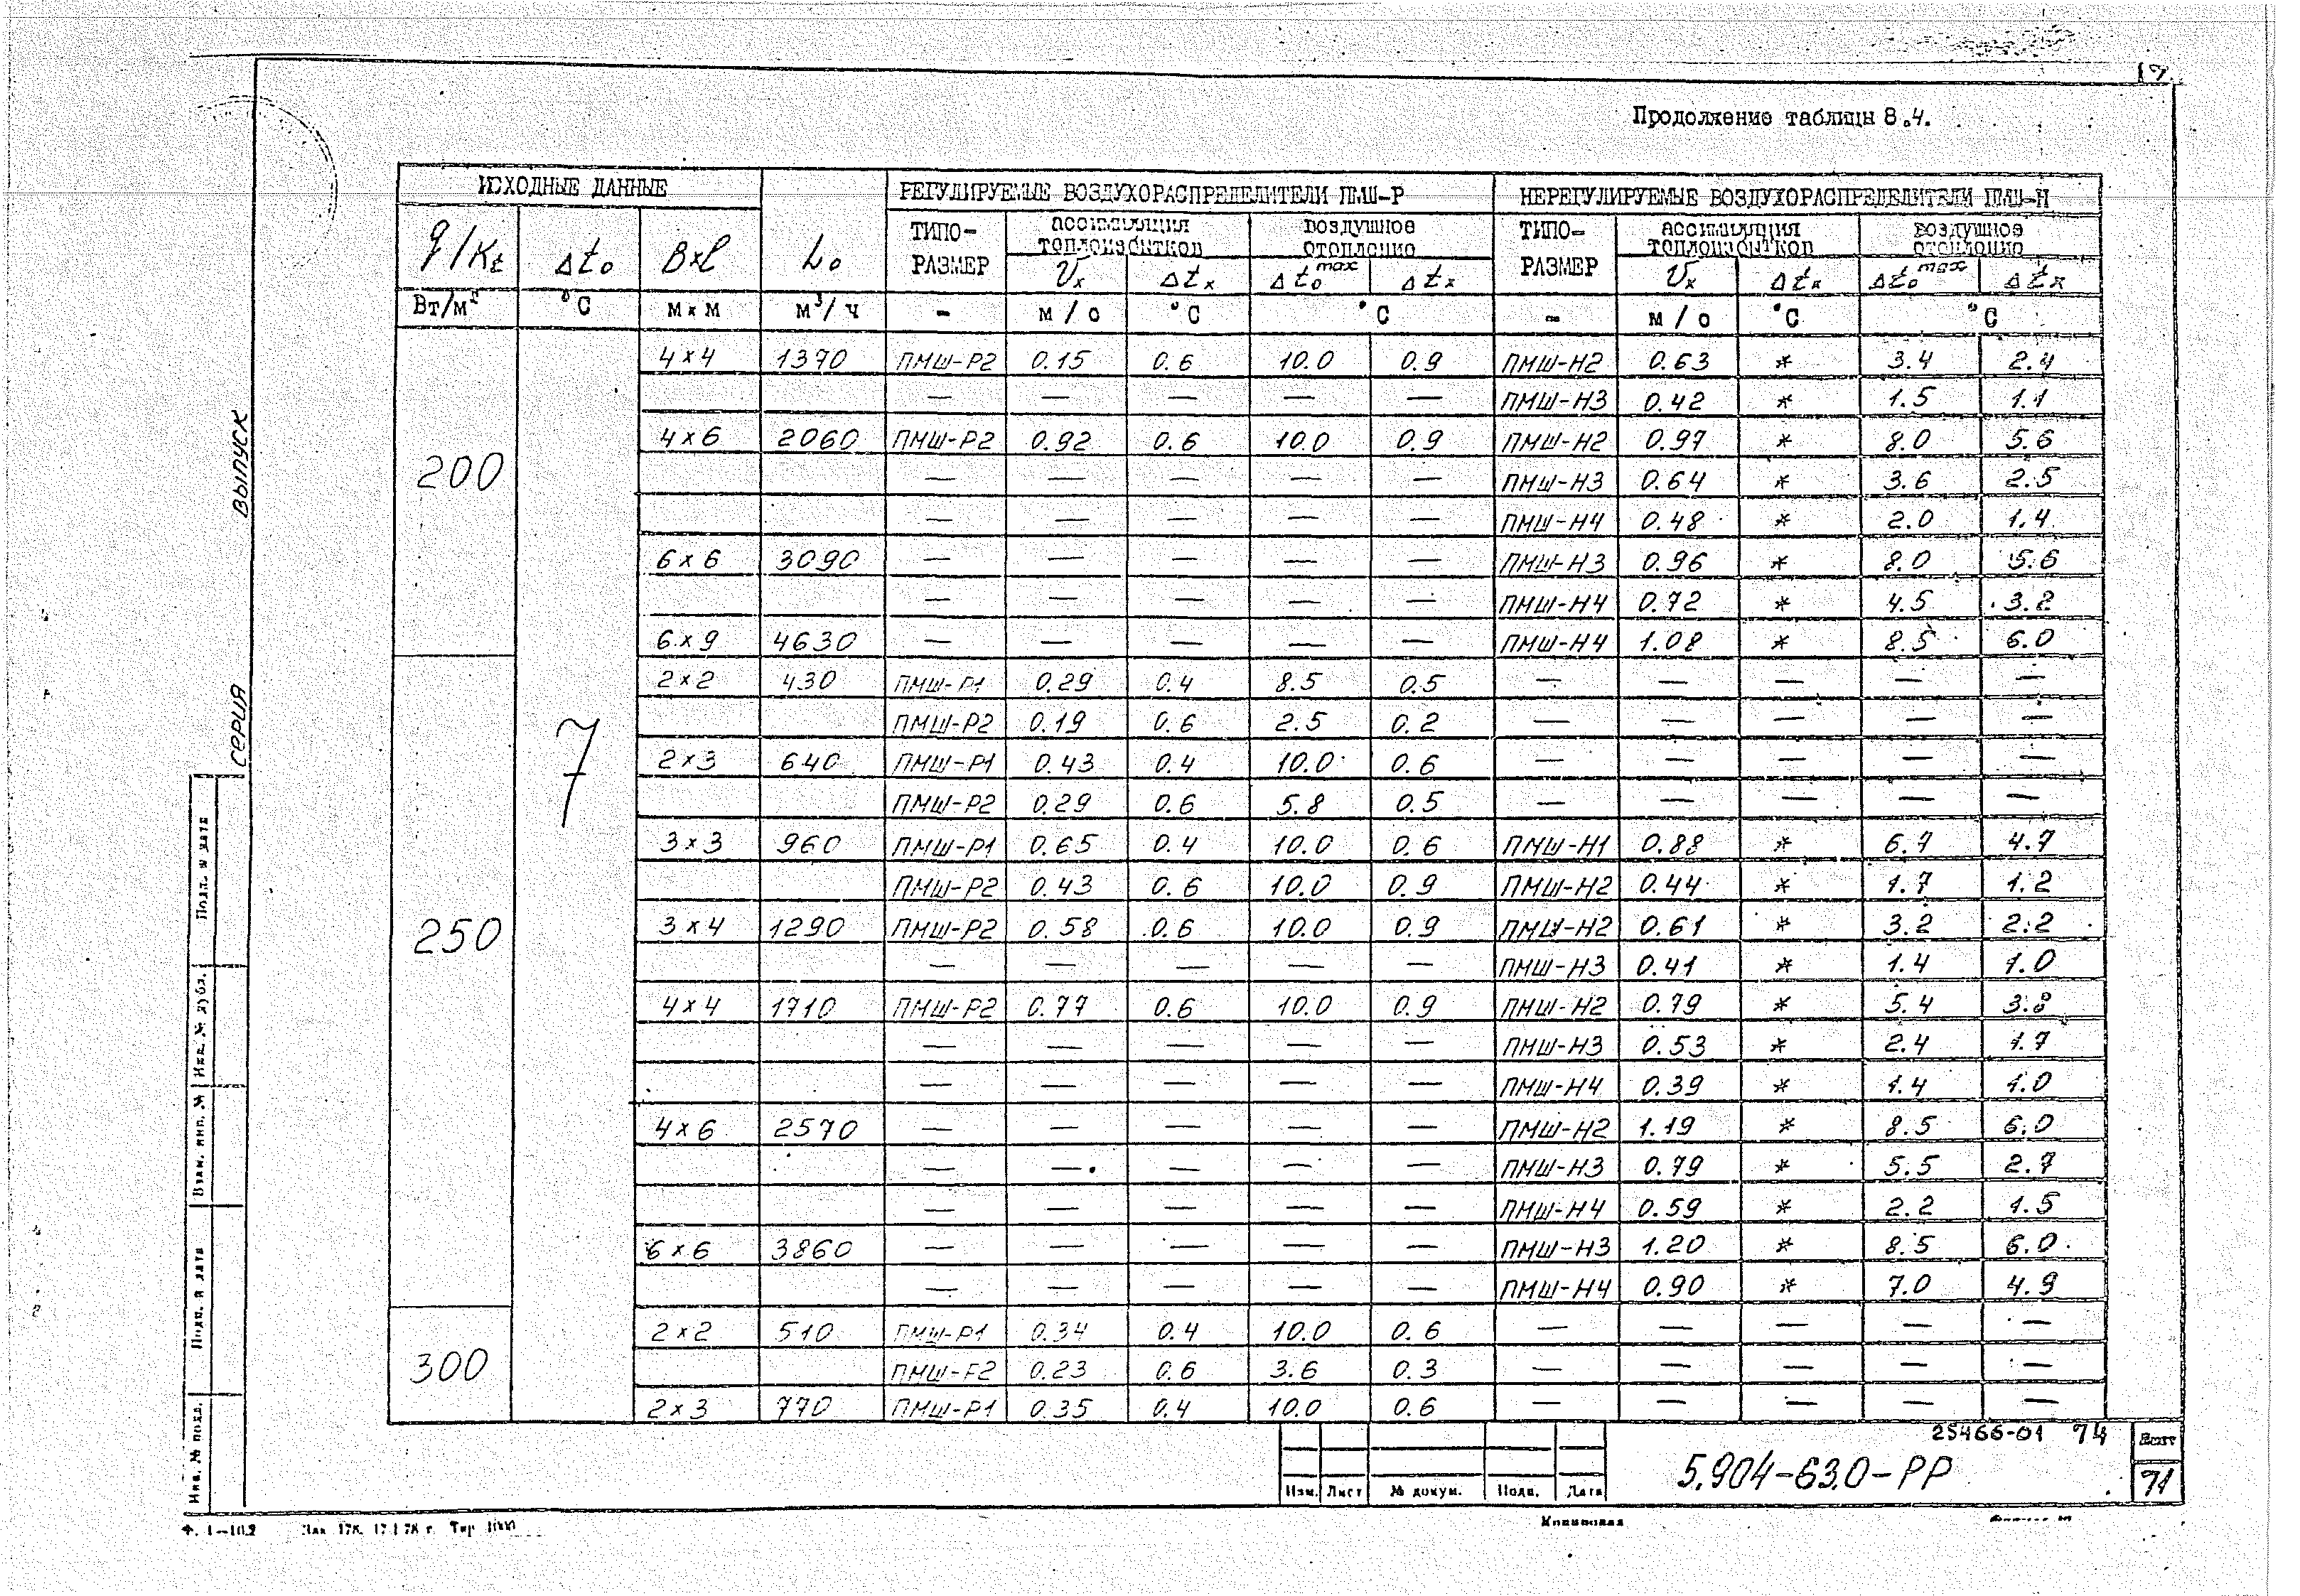 Продолжение таблицы 8.4.
ИСХОДНЫЕ ДАННЫЕ РЕГУЛИРУЕМЫЕ ВОЗДУХОРАСПРЕДЕЛИТЕЛИ ПМШ-Р НЕРЕГУЛИРУЕМЫЕ ВОЗДУХОРАСПРЕДЕЛИТЕЛИ ПМШ-Н
q/Kt Δto Bxl Lo ТИПО-РАЗМЕР ассимиляция теплоизбытков воздушное отопление ТИПО-РАЗМЕР ассимиляция теплоизбытков воздушное отопление
Vx Δtx Δto max Δtx Vx Δtx Δto max Δtx
Вт/м² °С м x м м³/ч - м/с °С °С - м/с °С °С
200 7 4x4 1370 ПМШ-Р2 0.15 0.6 10.0 0.9 ПМШ-Н2 0.63 * 3.4 2.4
— — — — — ПМШ-Н3 0.42 * 1.5 1.1
4x6 2060 ПМШ-Р2 0.92 0.6 10.0 0.9 ПМШ-Н2 0.97 * 8.0 5.6
— — — — — ПМШ-Н3 0.64 * 3.6 2.5
— — — — — ПМШ-Н4 0.48 * 2.0 1.4
6x6 3090 — — — — — ПМШ-Н3 0.96 * 8.0 5.6
— — — — — ПМШ-Н4 0.72 * 4.5 3.2
6x9 4630 — — — — — ПМШ-Н4 1.08 * 8.5 6.0
250 2x2 430 ПМШ-Р1 0.29 0.4 8.5 0.5 — — — — —
ПМШ-Р2 0.19 0.6 2.5 0.2 — — — — —
2x3 640 ПМШ-Р1 0.43 0.4 10.0 0.6 — — — — —
ПМШ-Р2 0.29 0.6 5.8 0.5 — — — — —
3x3 960 ПМШ-Р1 0.65 0.4 10.0 0.6 ПМШ-Н1 0.88 * 6.7 4.7
ПМШ-Р2 0.43 0.6 10.0 0.9 ПМШ-Н2 0.44 * 1.7 1.2
3x4 1290 ПМШ-Р2 0.58 0.6 10.0 0.9 ПМШ-Н2 0.61 * 3.2 2.2
— — — — — ПМШ-Н3 0.41 * 1.4 1.0
4x4 1710 ПМШ-Р2 0.77 0.6 10.0 0.9 ПМШ-Н2 0.79 * 5.4 3.8
— — — — — ПМШ-Н3 0.53 * 2.4 1.7
— — — — — ПМШ-Н4 0.39 * 1.4 1.0
4x6 2570 — — — — — ПМШ-Н2 1.19 * 8.5 6.0
— — — — — ПМШ-Н3 0.79 * 5.5 2.7
— — — — — ПМШ-Н4 0.59 * 2.2 1.5
6x6 3860 — — — — — ПМШ-Н3 1.20 * 8.5 6.0
— — — — — ПМШ-Н4 0.90 * 7.0 4.9
300 2x2 510 ПМШ-Р1 0.34 0.4 10.0 0.6 — — — — —
ПМШ-Р2 0.23 0.6 3.6 0.3 — — — — —
2x3 770 ПМШ-Р1 0.35 0.4 10.0 0.6 — — — — —
СЕРИЯ ВЫПУСК
Подп. и дата
Инв. № дубл.
Взам. инв. №
Подп. и дата
Инв. № подл.
25466-01 74
5.904-63.0-РР
Лист
71
Изм. Лист № докум. Подп. Дата
Копировал